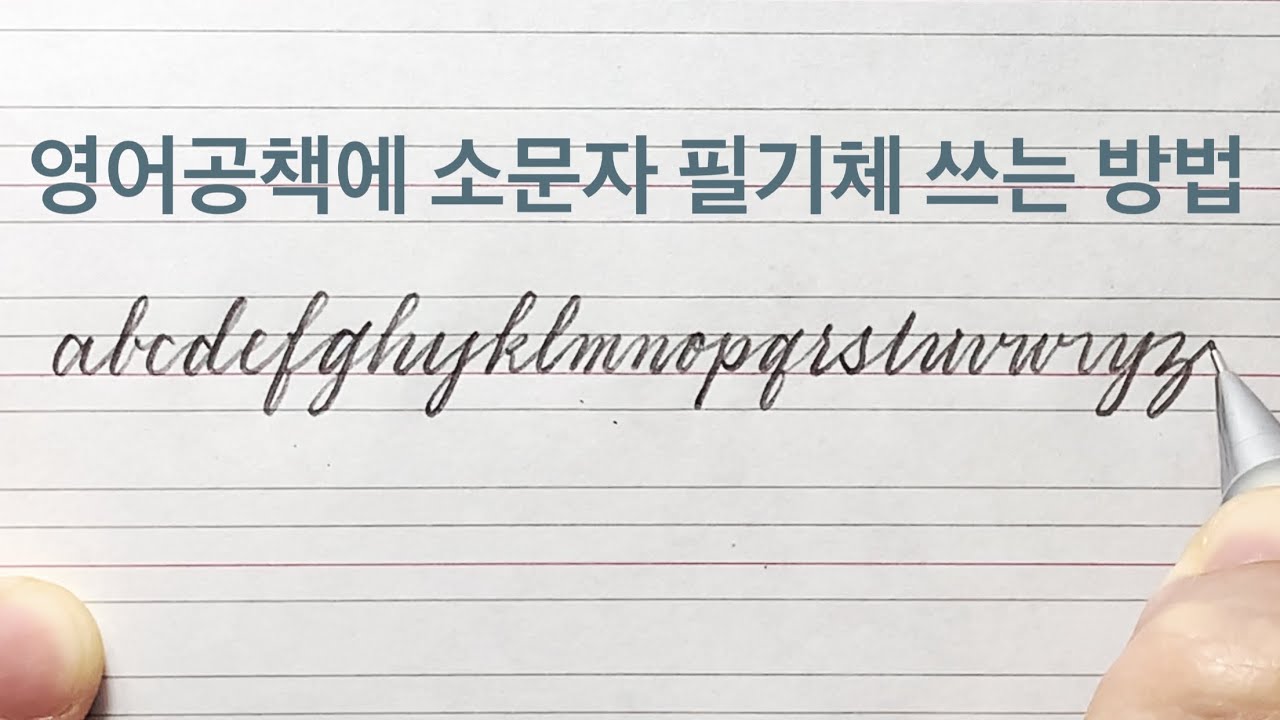 영어공책에 소문자 필기체 쓰는 방법
abcdefghijklmnopqrstuvwxyz